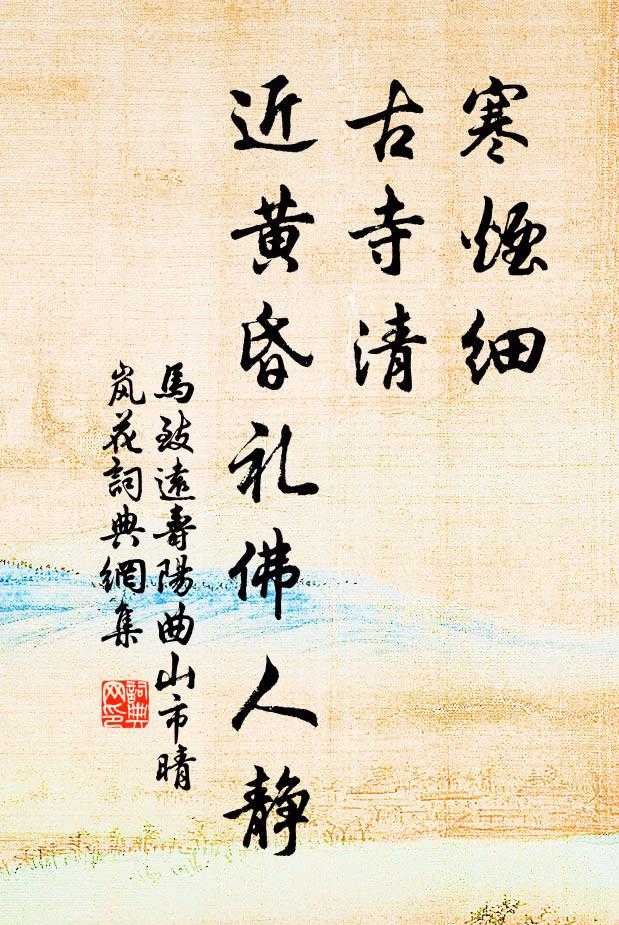 寒煙細
古寺清
近黄昏礼佛人静
馬致遠壽陽曲山市晴
嵐花詞典網集
詞典
网印